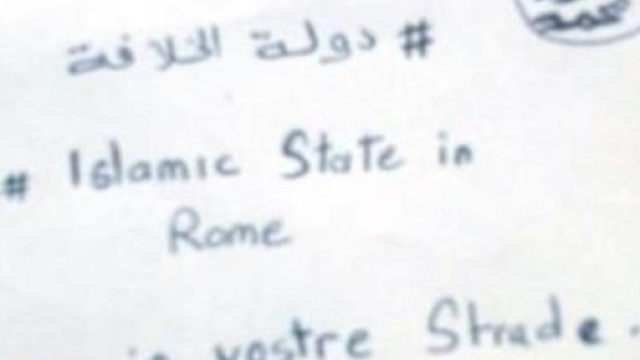 # دولة الخلافة
محمد
# Islamic State in
Rome
in vostre Strade.